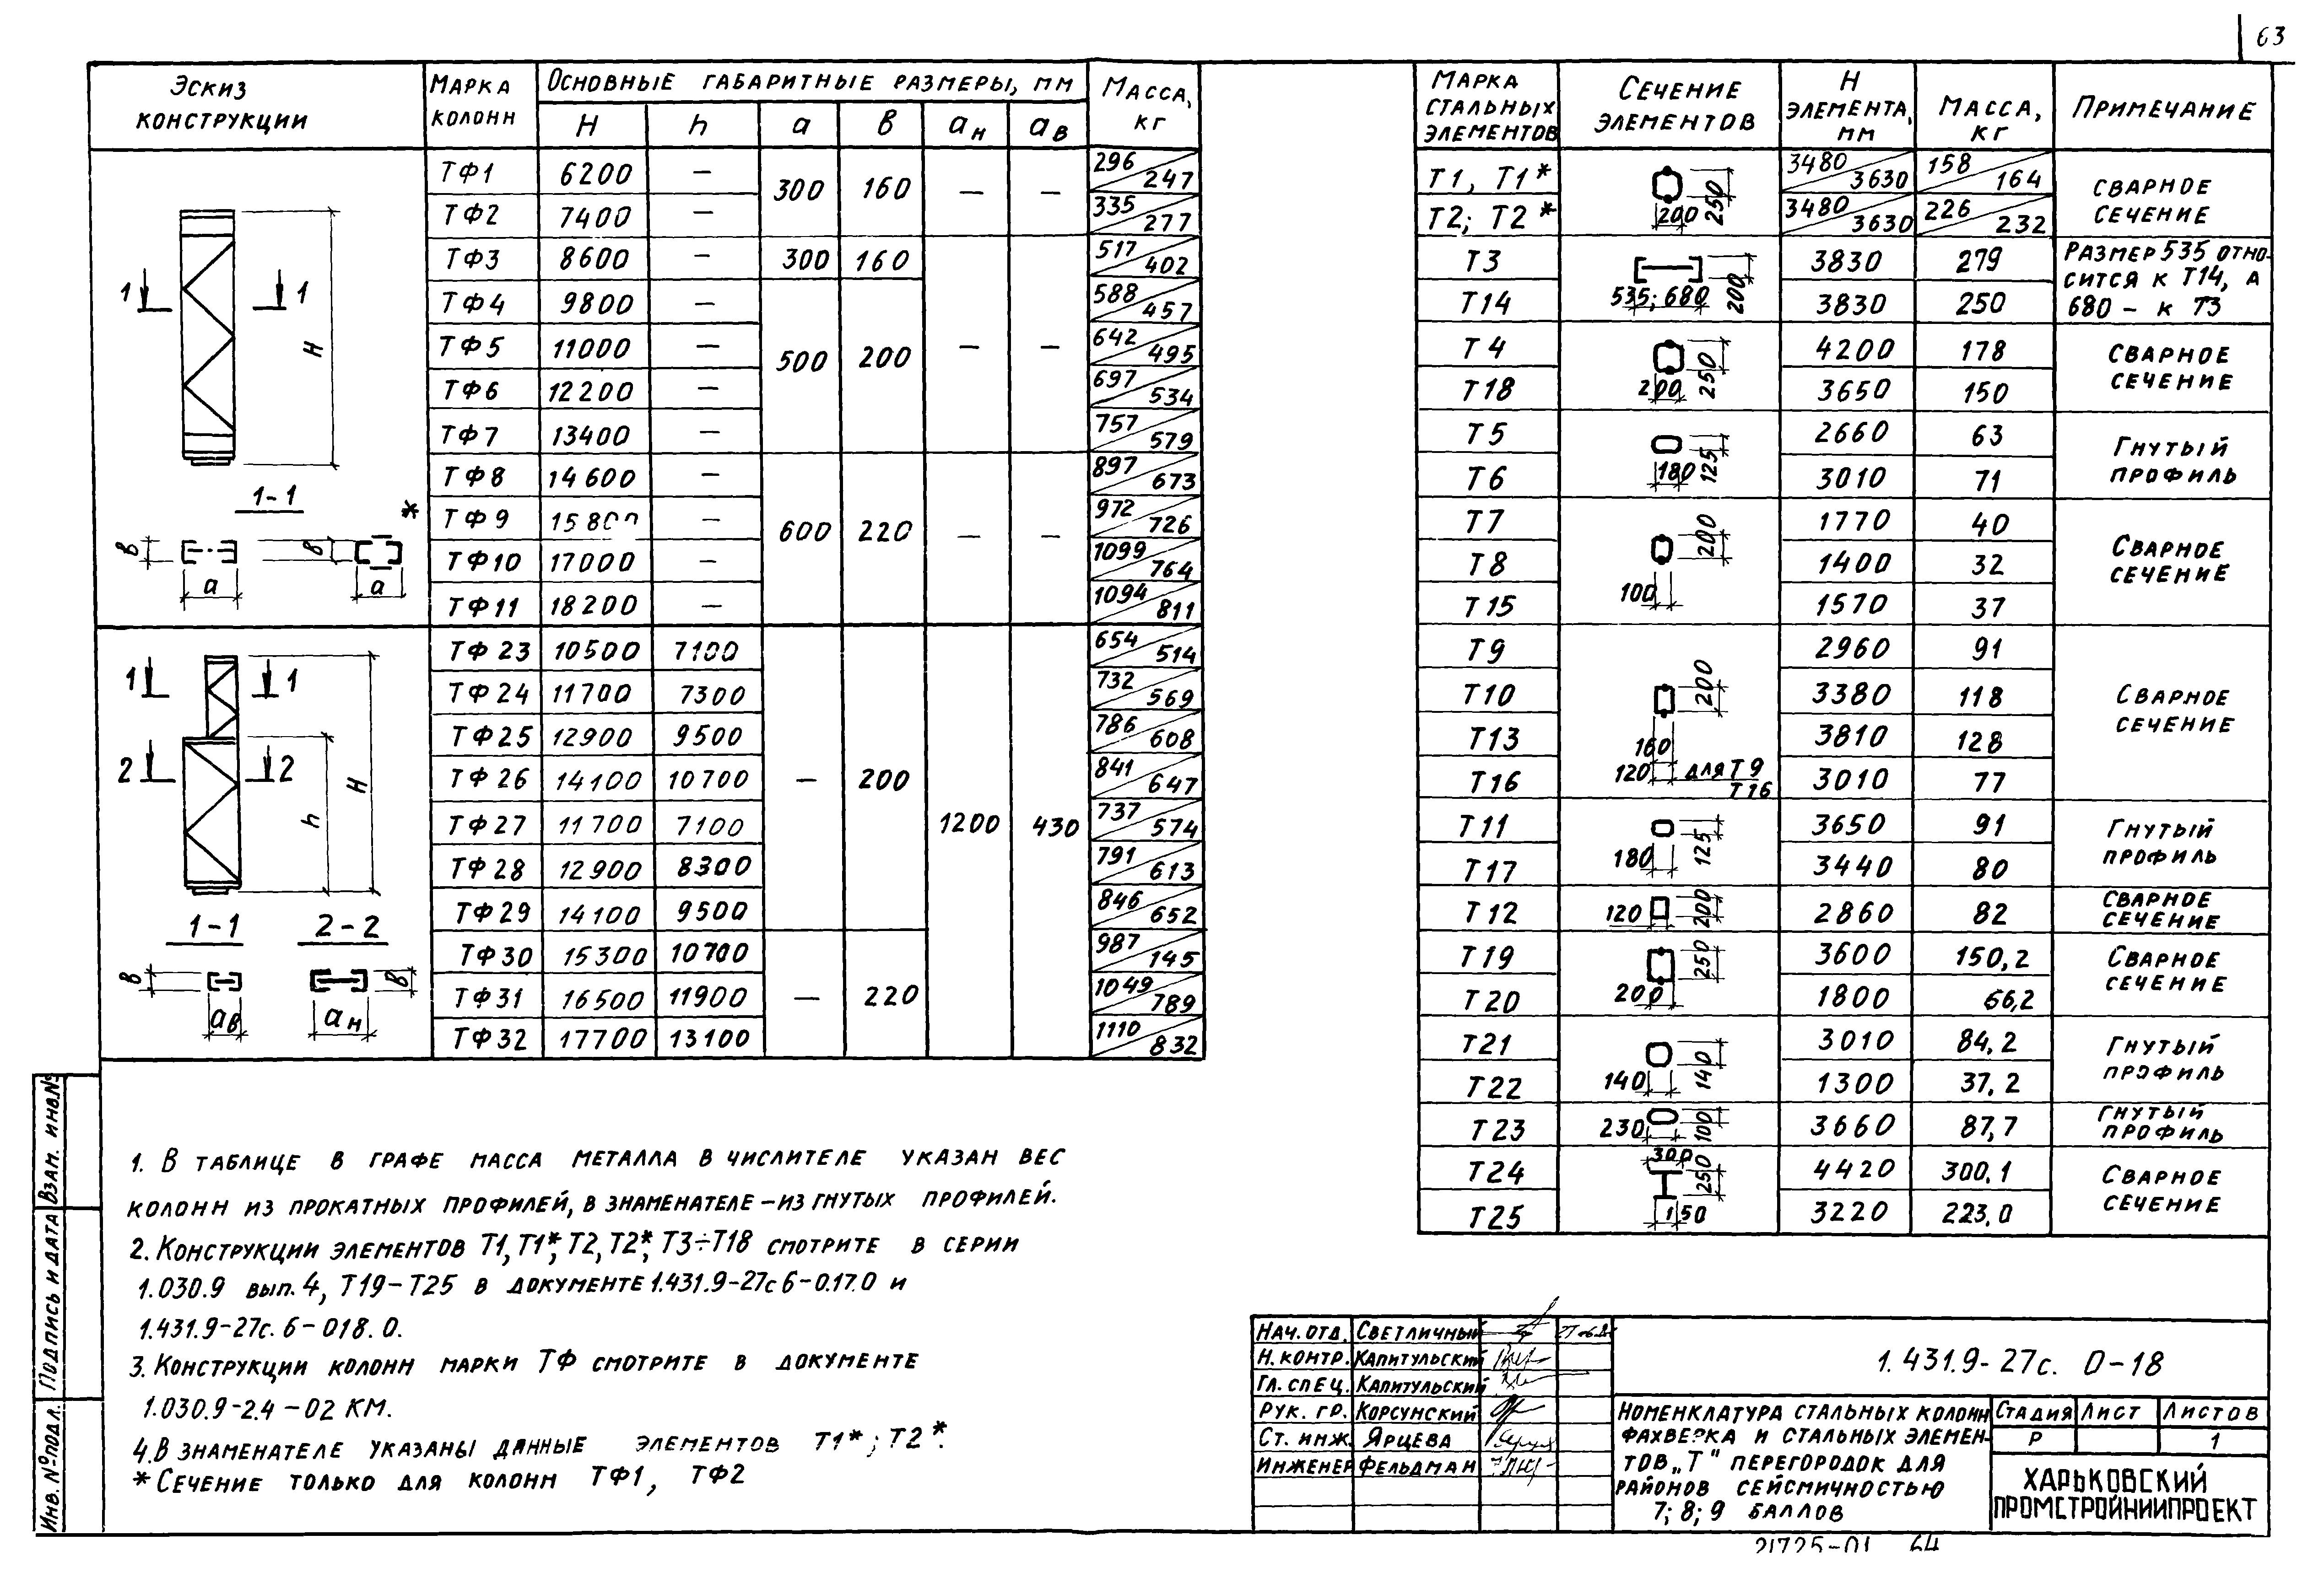 63
Эскиз конструкции | Марка колонн | Основные габаритные размеры, мм | Масса, кг
H | h | a | в | aн | aв
ТФ1 | 6200 | — | 300 | 160 | — | — | 296/247
ТФ2 | 7400 | — | 335/277
ТФ3 | 8600 | — | 300 | 160 | 517/402
ТФ4 | 9800 | — | 588/457
ТФ5 | 11000 | — | 500 | 200 | — | — | 642/495
ТФ6 | 12200 | — | 697/534
ТФ7 | 13400 | — | 757/579
ТФ8 | 14600 | — | 897/673
ТФ9 | 15800 | — | 600 | 220 | — | — | 972/726
ТФ10 | 17000 | — | 1099/764
ТФ11 | 18200 | — | 1094/811
ТФ23 | 10500 | 7100 | 654/514
ТФ24 | 11700 | 7300 | 732/569
ТФ25 | 12900 | 9500 | 786/608
ТФ26 | 14100 | 10700 | — | 200 | 841/647
ТФ27 | 11700 | 7100 | 1200 | 430 | 737/574
ТФ28 | 12900 | 8300 | 791/613
ТФ29 | 14100 | 9500 | 846/652
ТФ30 | 15300 | 10700 | 987/145
ТФ31 | 16500 | 11900 | — | 220 | 1049/789
ТФ32 | 17700 | 13100 | 1110/832
1 1
H
1-1
*
в в
a a
1 1
2 2
h H
1-1 2-2
в в
aв aн
Марка стальных элементов | Сечение элементов | H элемента, мм | Масса, кг | Примечание
Т1, Т1* | 200 250 | 3480/3630 | 158/164 | Сварное сечение
Т2; Т2* | 3480/3630 | 226/232
Т3 | 535; 680 200 | 3830 | 279 | Размер 535 относится к Т14, а 680 – к Т3
Т14 | 3830 | 250
Т4 | 200 250 | 4200 | 178 | Сварное сечение
Т18 | 3650 | 150
Т5 | 180 125 | 2660 | 63 | Гнутый профиль
Т6 | 3010 | 71
Т7 | 100 200 | 1770 | 40 | Сварное сечение
Т8 | 1400 | 32
Т15 | 1570 | 37
Т9 | 160 200 | 2960 | 91 | Сварное сечение
Т10 | 3380 | 118
Т13 | 3810 | 128
Т16 | 120 для Т9 Т16 | 3010 | 77
Т11 | 180 125 | 3650 | 91 | Гнутый профиль
Т17 | 3440 | 80
Т12 | 120 200 | 2860 | 82 | Сварное сечение
Т19 | 200 250 | 3600 | 150,2 | Сварное сечение
Т20 | 1800 | 66,2
Т21 | 140 140 | 3010 | 84,2 | Гнутый профиль
Т22 | 1300 | 37,2
Т23 | 230 100 | 3660 | 87,7 | Гнутый профиль
Т24 | 300 250 | 4420 | 300,1 | Сварное сечение
Т25 | 150 | 3220 | 223,0
1. В таблице в графе масса металла в числителе указан вес
колонн из прокатных профилей, в знаменателе – из гнутых профилей.
2. Конструкции элементов Т1, Т1*, Т2, Т2*, Т3÷Т18 смотрите в серии
1.030.9 вып. 4, Т19–Т25 в документе 1.431.9-27с 6-0.17.0 и
1.431.9-27с. 6-018.0.
3. Конструкции колонн марки ТФ смотрите в документе
1.030.9-2.4-02 КМ.
4. В знаменателе указаны данные элементов Т1*; Т2*.
* Сечение только для колонн ТФ1, ТФ2
Взам. инв.№
Подпись и дата
Инв. № подл.
Нач. отд. | Светличный
Н. контр. | Капитульский
Гл. спец. | Капитульский
Рук. гр. | Корсунский
Ст. инж. | Ярцева
Инженер | Фельдман
1.431.9-27с. 0-18
Номенклатура стальных колонн
фахверка и стальных элемен-
тов „Т" перегородок для
районов сейсмичностью
7; 8; 9 баллов
Стадия | Лист | Листов
Р | | 1
ХАРЬКОВСКИЙ
ПРОМСТРОЙНИИПРОЕКТ
21725-01 64